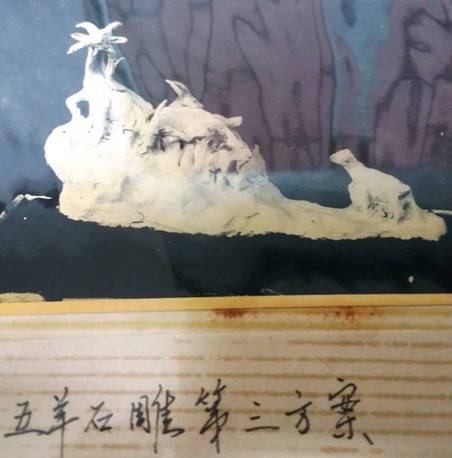 五羊石雕第三方案